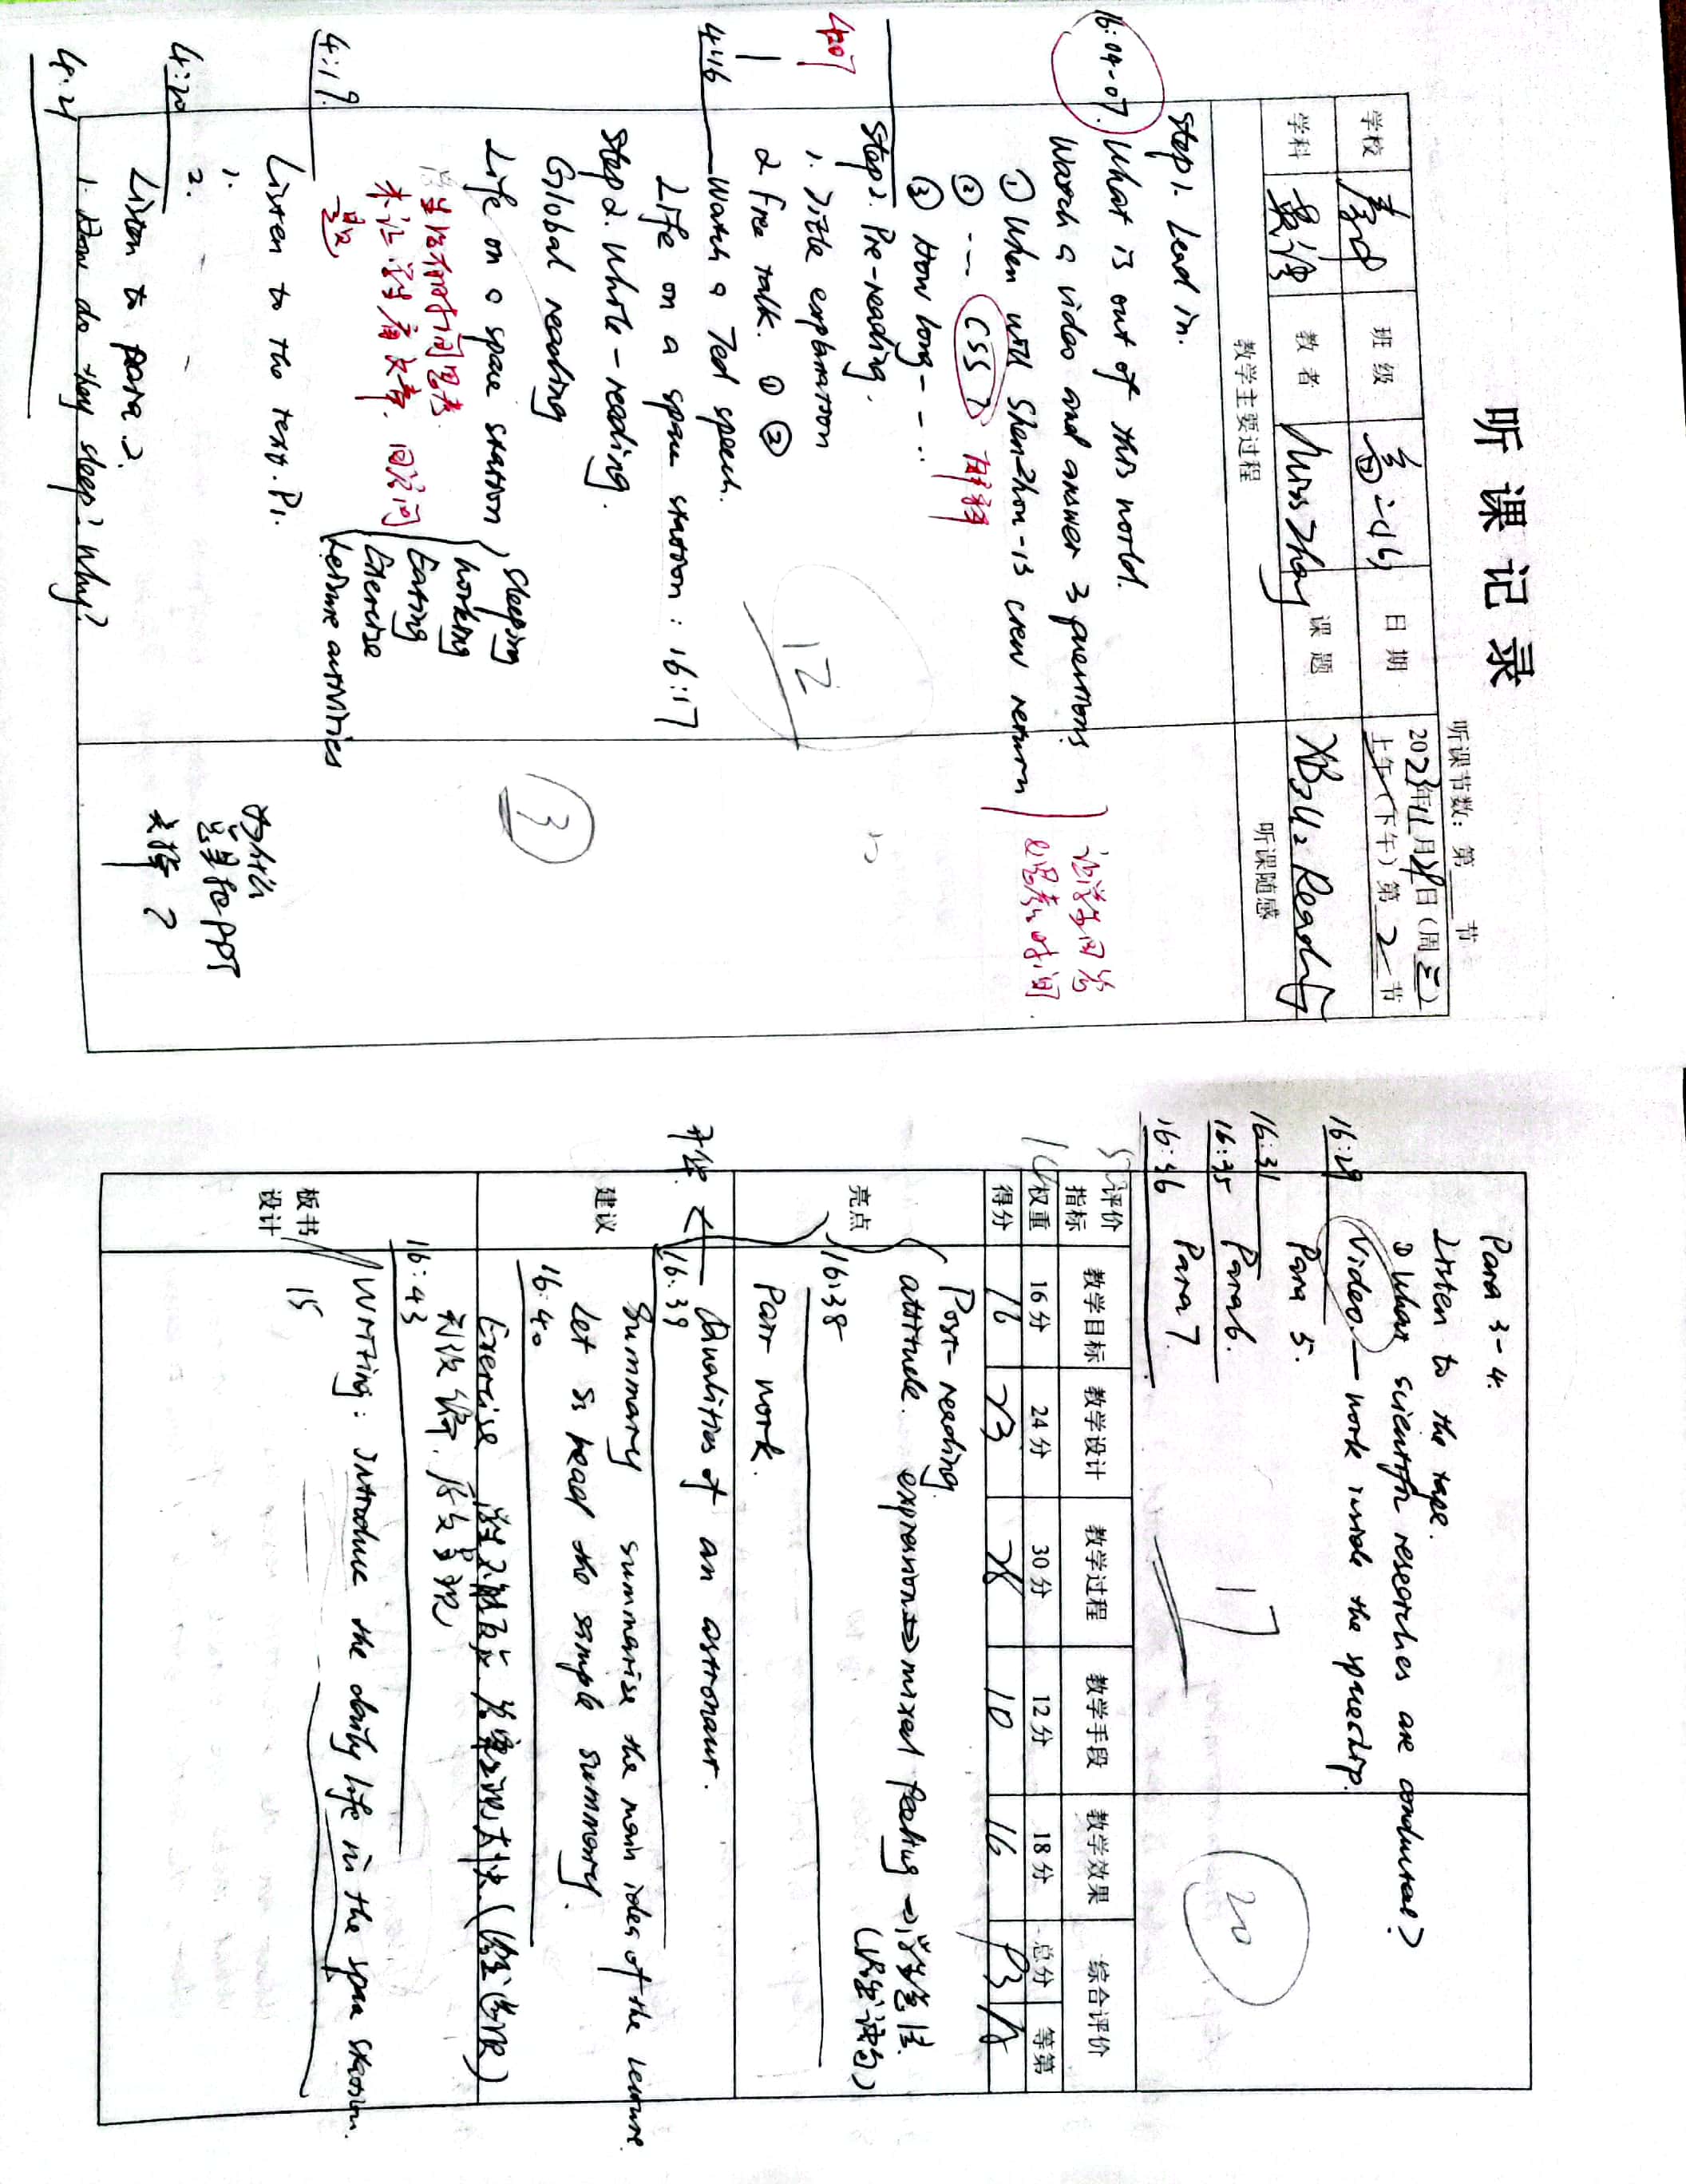 听课记录
听课节数：第 节
学校 泰中 班级 高二(16) 日期 2023年11月29日（周三）
上午（下午）第2节
学科 英语 教者 Miss Zhang 课题 XB3U2 Reading
教学主要过程 听课随感
Step 1. Lead in.
16:04-07. What is out of this world.
Watch a video and answer 3 questions.
① When will Shenzhou-13 crew return
② --- CSS? 解释
③ How long- - ..
让学生回答
思考时间.
Step 2. Pre-reading.
4:07
1. Title explanation
2. Free talk. ① ②
12
4:16 Watch a Ted speech.
Life on a space station: 16:17
Step 2. While-reading.
Global reading
3
Life on a space station
Sleeping
Working
Eating
Exercise
Leisure activities
学生没有时间思考.
未让学生看文章. 回答问
题
4:19
Listen to the text. P1.
1.
2.
4:20
为什么
总是把PPT
关掉？
Listen to para.2.
1. How do they sleep? Why?
4:21
Para 3-4.
Listen to the tape.
① What scientific researches are conducted?
16:29 Video — work inside the spaceship.
Para 5.
16:31
16:35 Para 6.
17
20
Para 7.
16:36
评价指标 教学目标 教学设计 教学过程 教学手段 教学效果 综合评价
权重 16分 24分 30分 12分 18分 总分 等第
得分 16 23 28 10 16 93 A
亮点
Post-reading
attitude. expression → mixed feeling → 学生
16:38
Pair work.
Qualities of an astronaut.
升华
16:39
建议
Summary summarise the main idea of the lecture.
Let Ss read the sample summary.
16:40
Exercise 学生不能反应. 答案出现太快.(给出选项)
原文呈现
16:43
板书设计
Writing: Introduce the daily life in the space station.
15